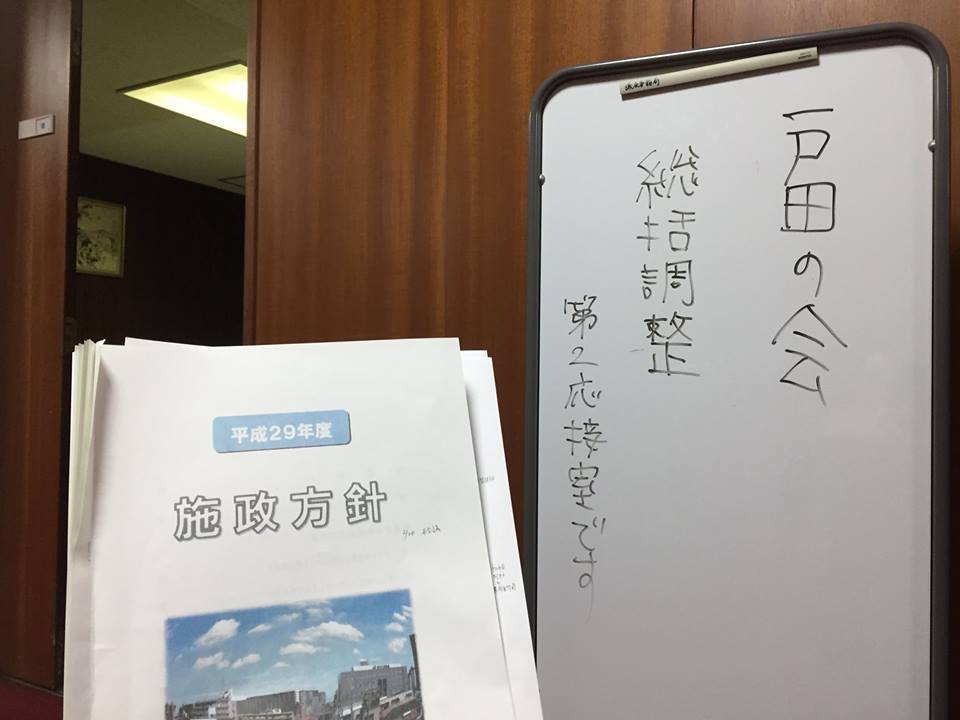 戸田の会
総括調整
第2応接室です
平成29年度
施政方針